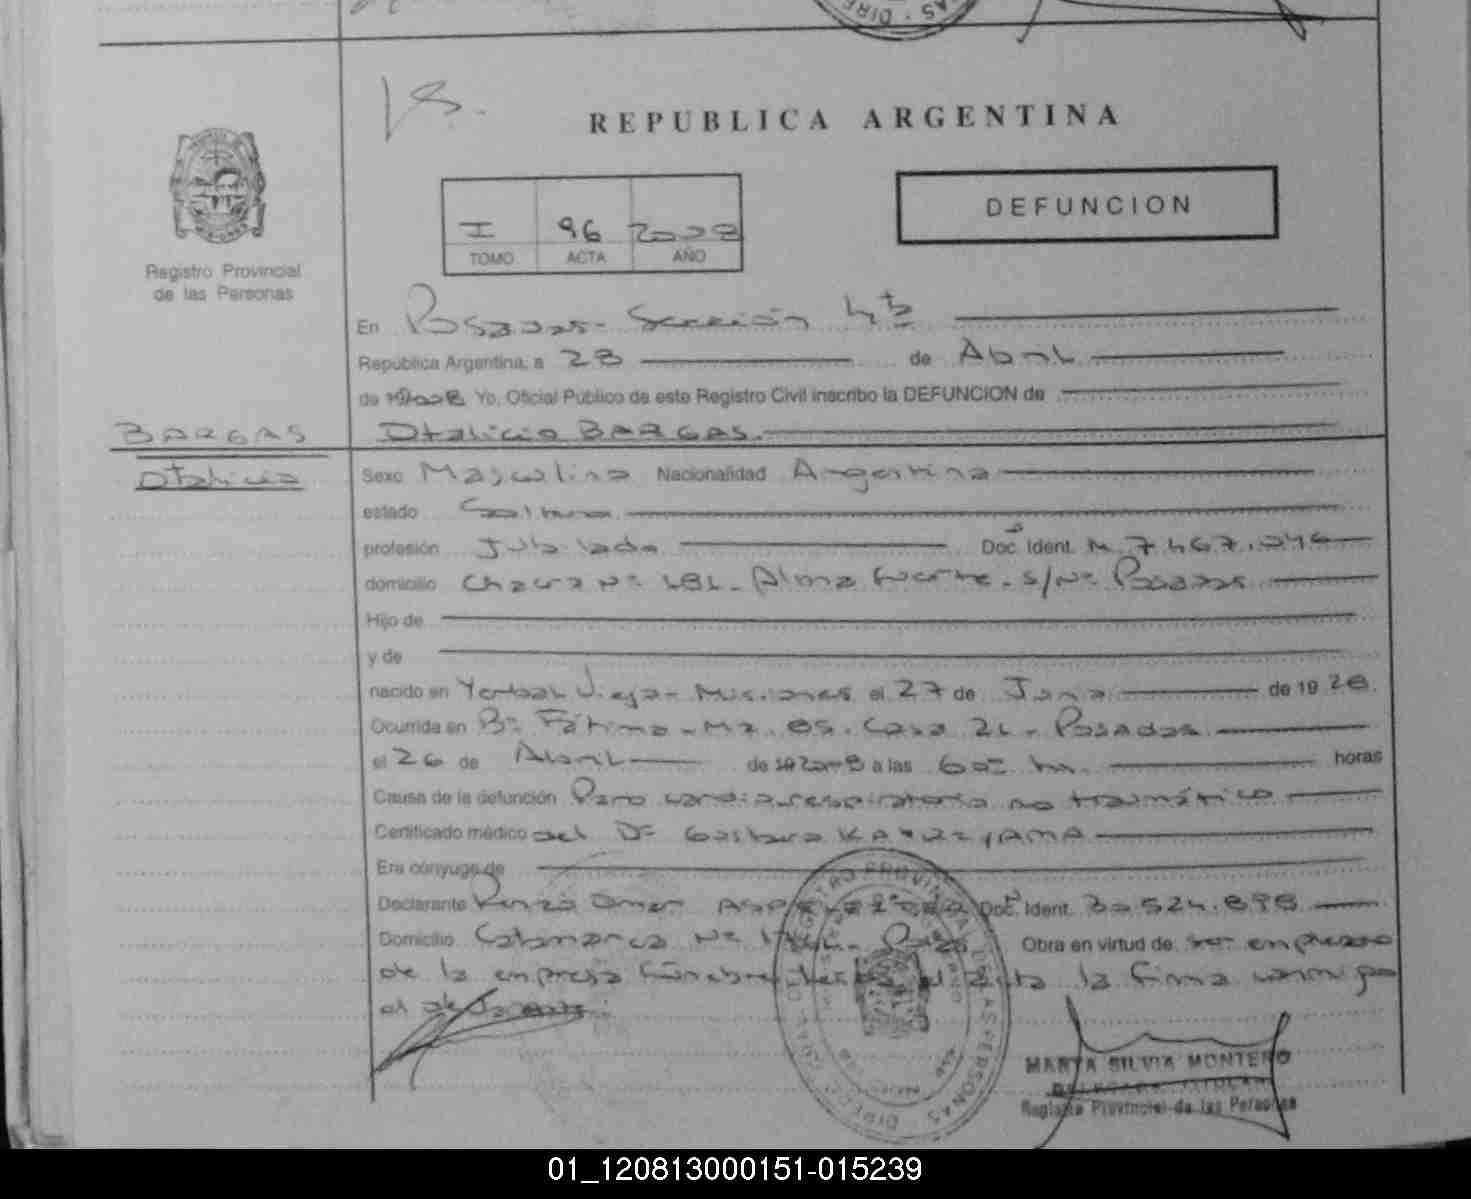 REPUBLICA ARGENTINA
DEFUNCION
I 96 2008
TOMO ACTA AÑO
Registro Provincial
de las Personas
En Posadas - Sección 4ta
República Argentina, a 28 de Abril
de 2008 Yo, Oficial Público de este Registro Civil inscribo la DEFUNCION de
BARGAS
Otalicio BARGAS.
Otalicio
Sexo Masculino Nacionalidad Argentina
estado Soltero
profesión Jubilado Doc. Ident. M. 7.467.
domicilio Chacra Nº 181 - Alma Fuerte - S/Nº Posadas
Hijo de
y de
nacido en Yerbal Viejo - Misiones el 27 de Junio de 1928.
Ocurrida en Bº Fátima - Mz. 05. Casa 21 - Posadas
el 26 de Abril de 2008 a las hs. horas
Causa de la defunción Paro cardio respiratorio no traumático
Certificado médico del Dr Gustavo
Era cónyuge de
Declarante Omar Doc. Ident. 30.524.898
Domicilio Catamarca Nº Obra en virtud de ser empleado
de la empresa fúnebre la firma conmigo
MARTA SILVIA MONTERO
DELEGADA TITULAR
Registro Provincial de las Personas
01_120813000151-015239